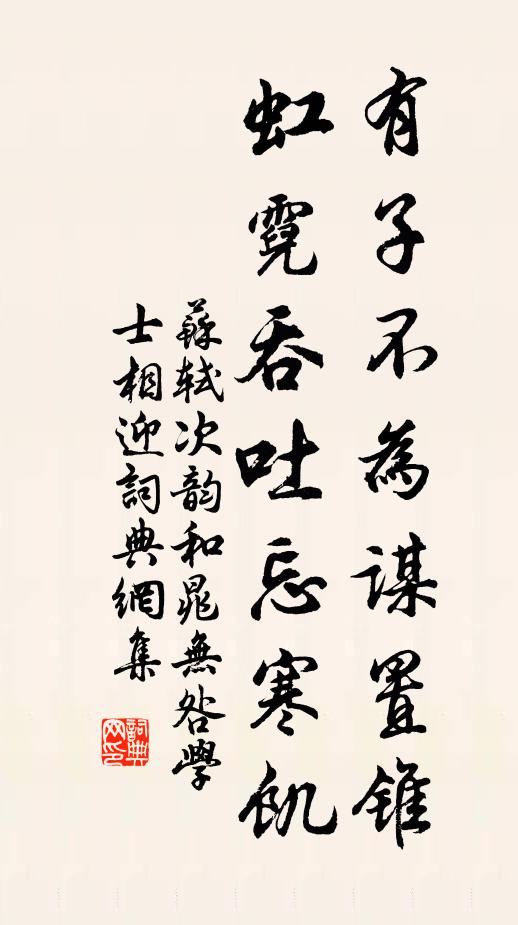 有子不為謀置錐
虹霓吞吐忘寒飢
蘇軾次韵和晁無咎學
士相迎詞典網集
詞典網印